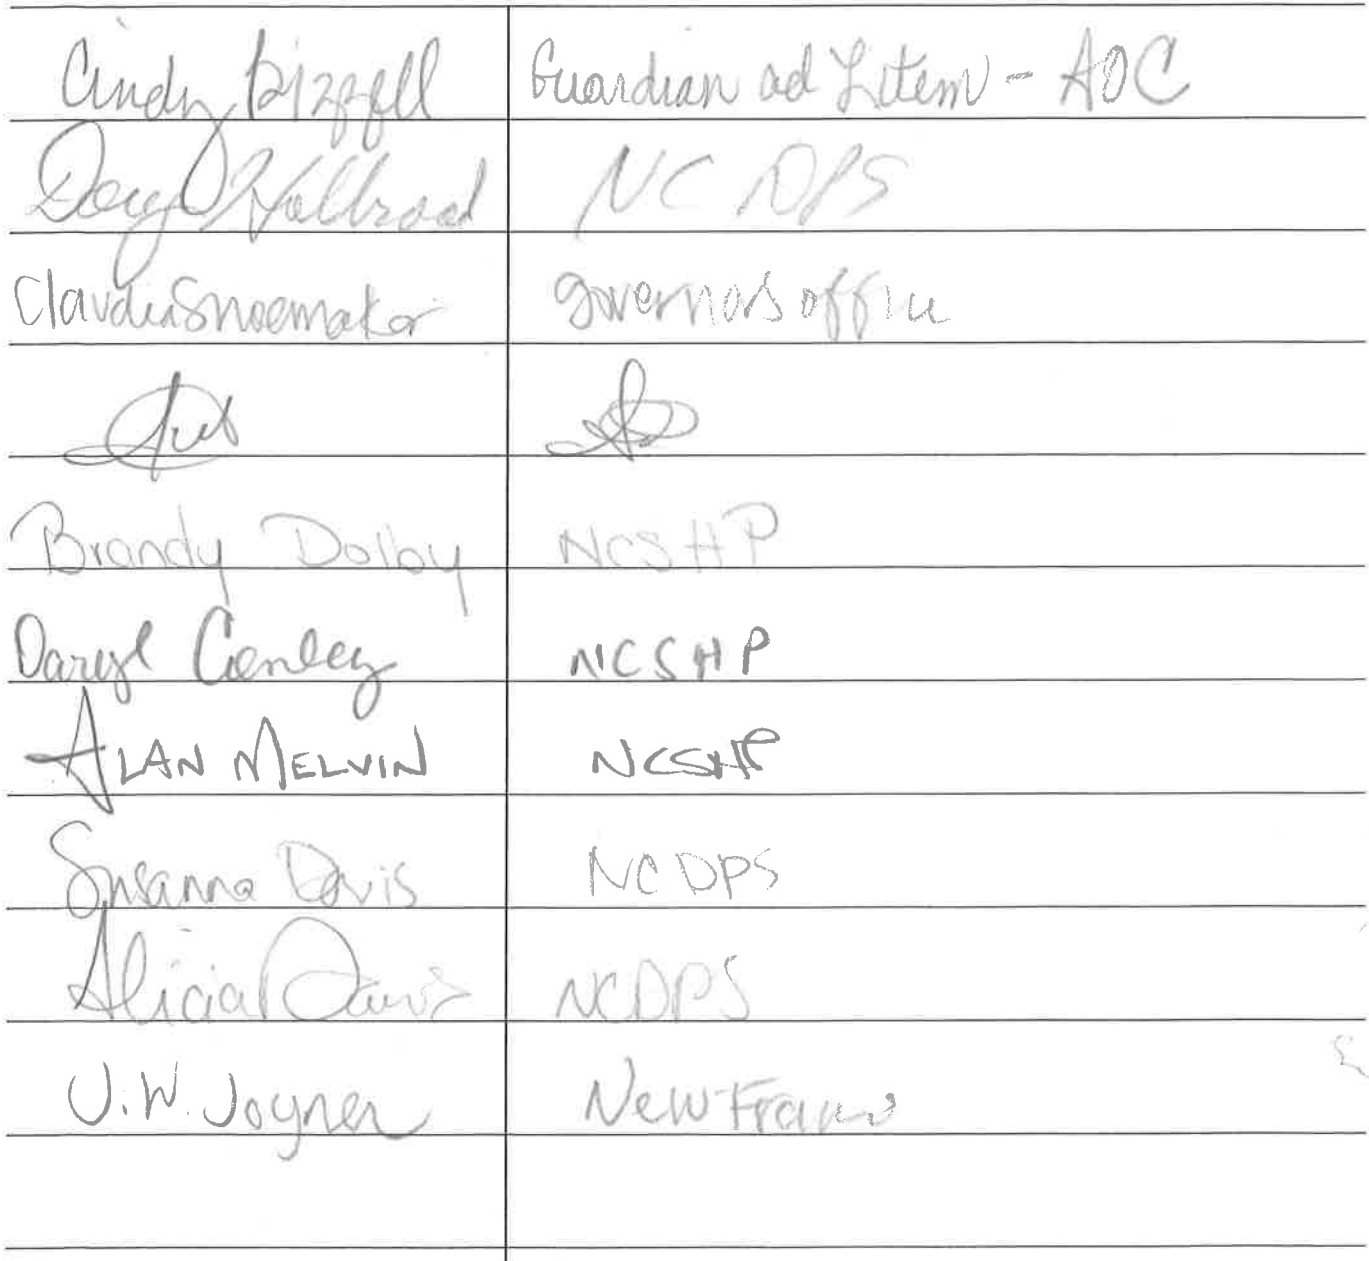 Cindy Bizzell Guardian ad Litem - AOC
Doug Holbrook NC DPS
Claudia Shoemaker governors office
Brandy Dolby NCSHP
Daryl Conley NCSHP
ALAN MELVIN NCSHP
Susanna Davis NC DPS
Alicia Davis NCDPS
J.W. Joyner New Frame